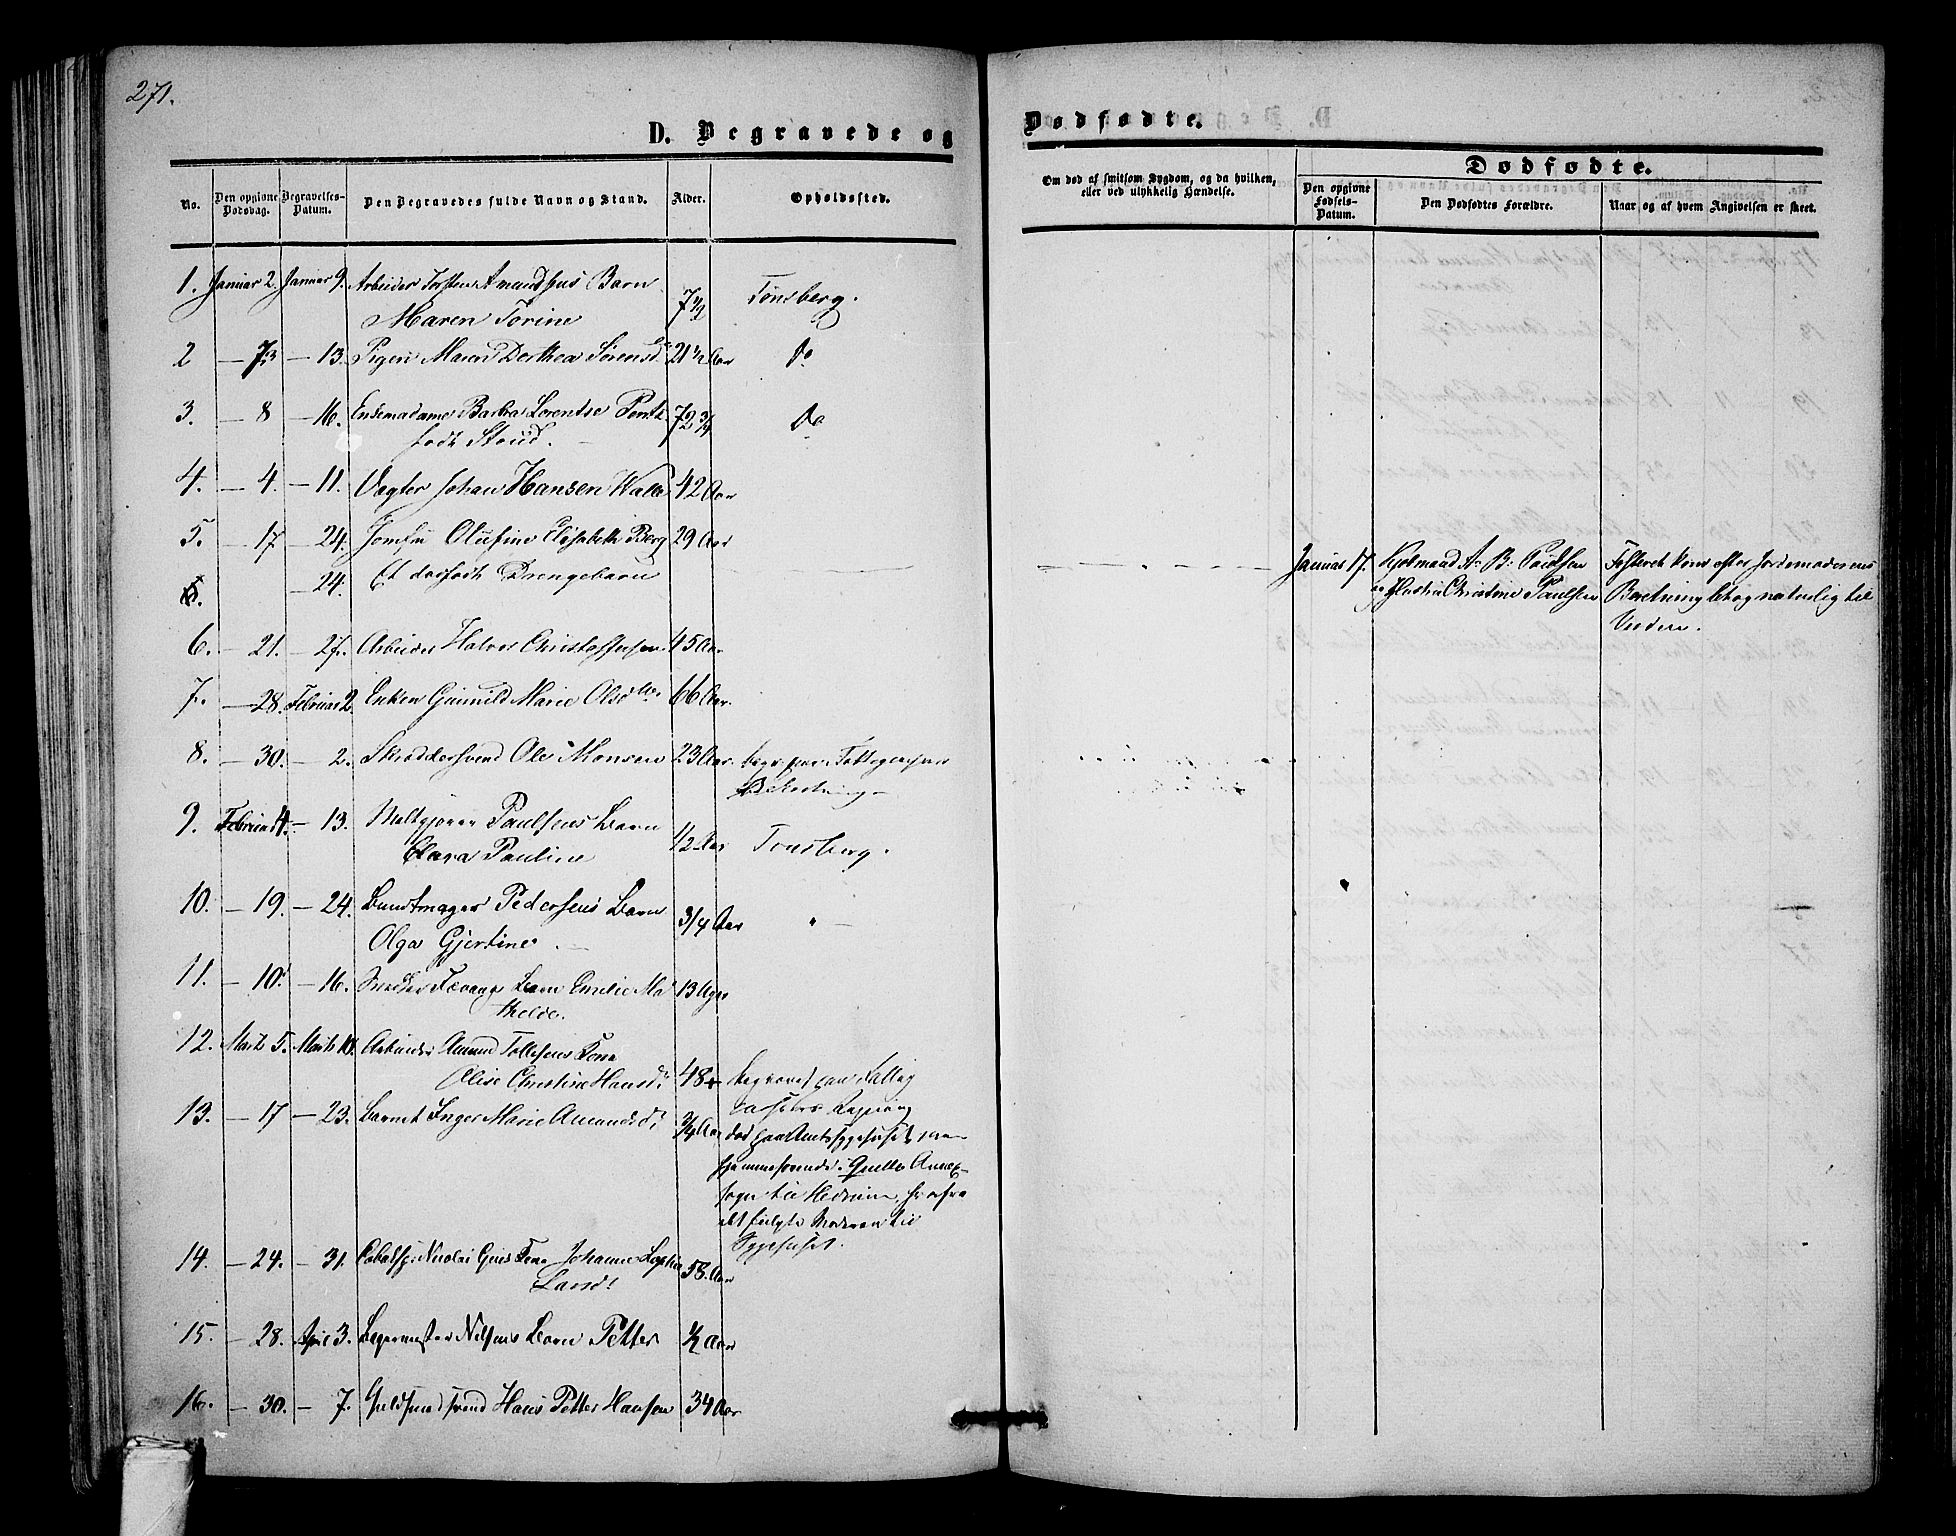 271.
D. Begravede og
Dødfødte.
No.
Den opgivne Dødsdag.
Begravelses-Datum.
Den Begravedes fulde Navn og Stand.
Alder.
Opholdssted.
Om død af smitsom Sygdom, og da hvilken, eller ved ulykkelig Hændelse.
Dødfødte.
Den opgivne Fødsels-Datum.
Den Dødfødtes Forældre.
Naar og af hvem Angivelsen er skeet.
1. Januar 2. Januar 9. Arbeider Torsten Amundsens Barn
Maren Torine 7 1/2 Tønsberg.
2 — 7. — 13. Pigen Maren Dorthea Sørensd. 21 1/2 Aar do
3. — 8 — 16. Enkemadame Barbra Lorentse
født Stoud. 72 3/4 do
4. — 4. — 11. Vægter Johan Hansen Walle 42 Aar
5. — 17 — 24. Jomfu Olufine Elisabeth Berg 29 Aar
— 24. Et dødfødt Drengebarn
Januar 17. Kjøbmand A. B. Paulsen
og Hustru Christine Paulsen
Fosteret kom efter Jordemoderens
Beretning letog naturlig til
Verden.
6. — 21. — 27. Arbeider Halvor Christophersen 45 Aar
7. — 28. Februar 2. Enken Gunnild Marie Olsdtr. 66 Aar.
8. — 30. — 2. Skræddersvend Ole Monsen 23 Aar Begr. paa Fattigvæsenets
Bekostning
9. Februar 4. — 13. Maltgjører Paulsens Barn
Clara Pauline 1/2 Aar Tønsberg.
10. — 19. — 24. Buntmager Pedersens Barn
Olga Gjertine. 3/4 Aar "
11. — 10. — 16. Snedker Barn Emilie Ma
thelde. 13 Uger
12. Marts 5. Marts Arbeider Amund Tollefsens Kone
Elise Christine Hansd. 48 Begravet paa Fattig
13. — 17 — 23. Barnet Inger Marie Amundsd. 3/4 Aar
død paa Amtssygehuset, var
hjemmehørende i Qvelle Annex-
sogn til Hedrum, hvorfra
det fulgte Moderen til
Sygehuset.
14. — 24. — 31. Nicolai Kone Johanne Sophie
Larsd. 58 Aar
15. — 28. April 3. Bagermester Nilsens Barn Petter 1/2 Aar
16. — 30. — 7. Guldsmedsvend Hans Petter Hansen 34 Aar